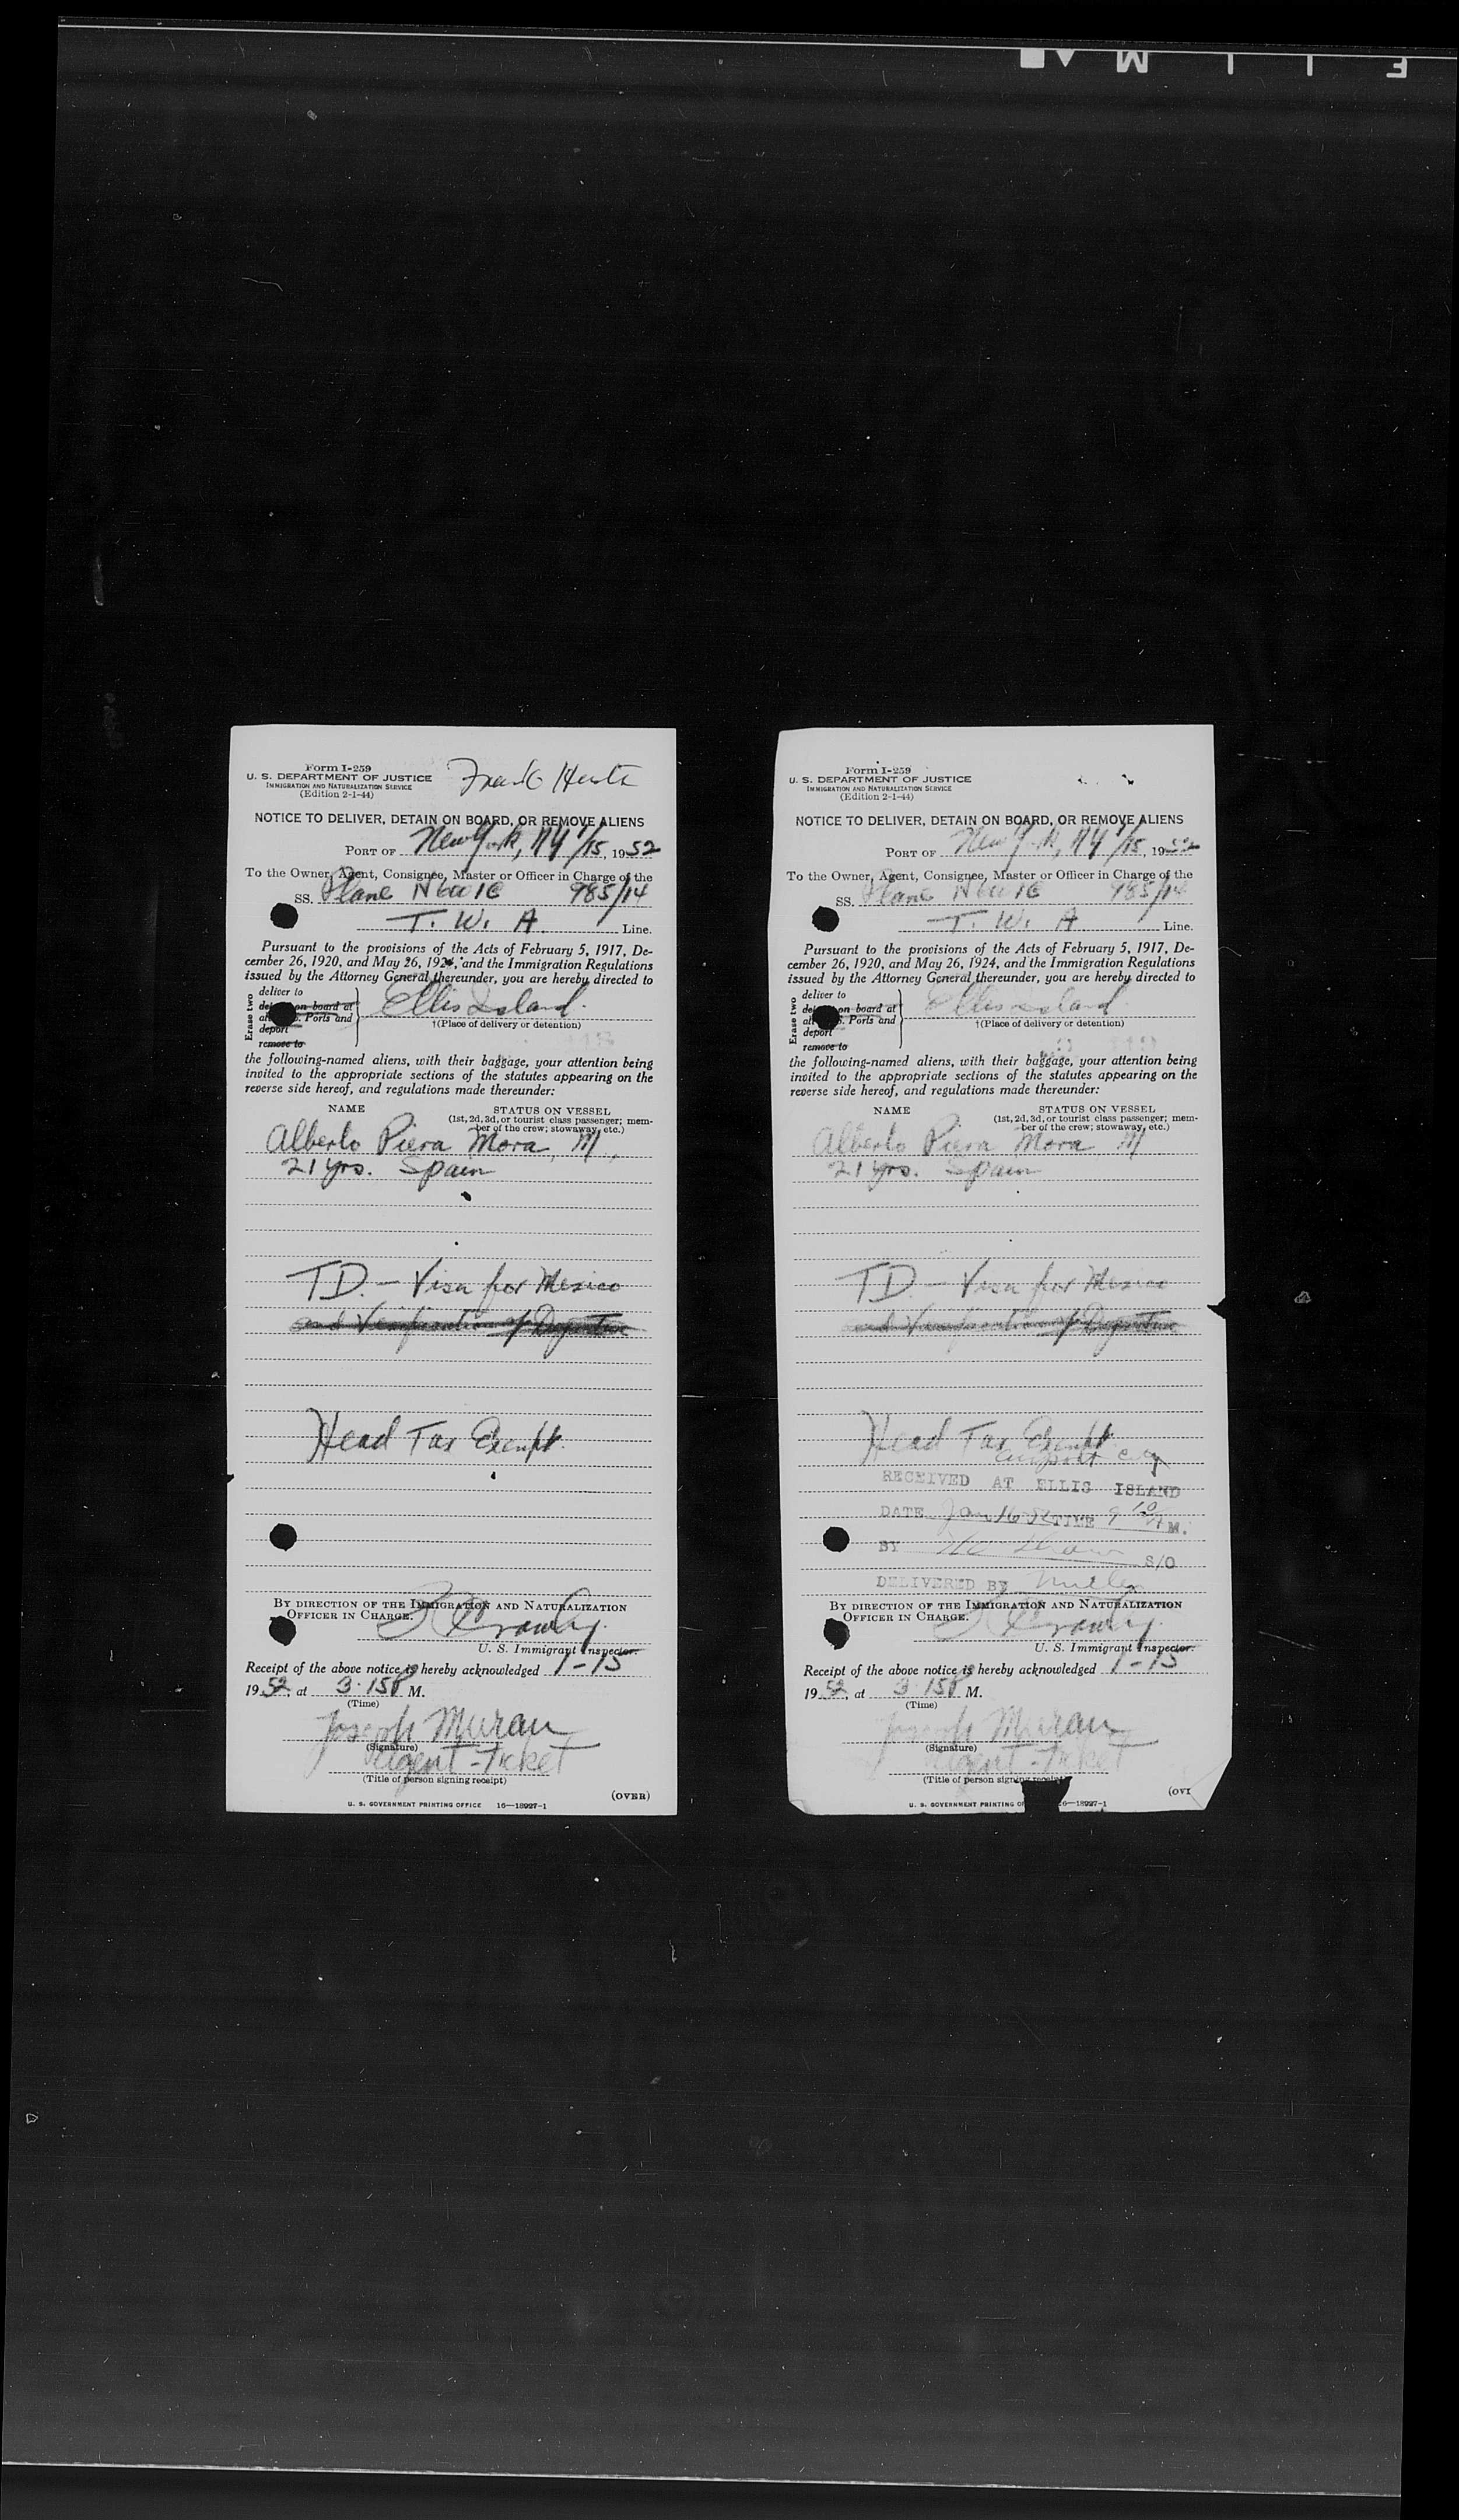 F I L M
Form I-259
U. S. DEPARTMENT OF JUSTICE
IMMIGRATION AND NATURALIZATION SERVICE
(Edition 2-1-44)
Frank
NOTICE TO DELIVER, DETAIN ON BOARD, OR REMOVE ALIENS
PORT OF New York, NY 1/15, 1952
To the Owner, Agent, Consignee, Master or Officer in Charge of the
SS. Plane N6001C 985/14
T. W. A. Line.
Pursuant to the provisions of the Acts of February 5, 1917, De-
cember 26, 1920, and May 26, 1924, and the Immigration Regulations
issued by the Attorney General thereunder, you are hereby directed to
Erase two
deliver to
on board at
Ports and
deport
remove to
Ellis Island
†(Place of delivery or detention)
the following-named aliens, with their baggage, your attention being
invited to the appropriate sections of the statutes appearing on the
reverse side hereof, and regulations made thereunder:
NAME STATUS ON VESSEL
(1st, 2d, 3d, or tourist class passenger; mem-
ber of the crew; stowaway, etc.)
Alberto Piera Mora, M,
21 yrs. Spain
TD. - Visa for Mexico
and Verification of Departure
Head Tax Exempt.
BY DIRECTION OF THE IMMIGRATION AND NATURALIZATION
OFFICER IN CHARGE.
U. S. Immigrant Inspector.
Receipt of the above notice is hereby acknowledged 1-15
1952, at 3:15 P M.
(Time)
Joseph Muran
(Signature)
Agent-Ticket
(Title of person signing receipt)
(OVER)
U. S. GOVERNMENT PRINTING OFFICE 16—18927-1
Form I-259
U. S. DEPARTMENT OF JUSTICE
IMMIGRATION AND NATURALIZATION SERVICE
(Edition 2-1-44)
NOTICE TO DELIVER, DETAIN ON BOARD, OR REMOVE ALIENS
PORT OF New York, NY 1/15, 1952
To the Owner, Agent, Consignee, Master or Officer in Charge of the
SS. Plane N6001C 985/14
T. W. A Line.
Pursuant to the provisions of the Acts of February 5, 1917, De-
cember 26, 1920, and May 26, 1924, and the Immigration Regulations
issued by the Attorney General thereunder, you are hereby directed to
Erase two
deliver to
on board at
S. Ports and
deport
remove to
Ellis Island
†(Place of delivery or detention)
the following-named aliens, with their baggage, your attention being
invited to the appropriate sections of the statutes appearing on the
reverse side hereof, and regulations made thereunder:
NAME STATUS ON VESSEL
(1st, 2d, 3d, or tourist class passenger; mem-
ber of the crew; stowaway, etc.)
Alberto Piera Mora M
21 yrs. Spain
TD - Visa for Mexico
and Verification of Departure
Head Tax Exempt.
RECEIVED AT ELLIS ISLAND
DATE Jan 16 52 TIME 9 10 A M.
BY S/O
DELIVERED BY Miller
BY DIRECTION OF THE IMMIGRATION AND NATURALIZATION
OFFICER IN CHARGE.
U. S. Immigrant Inspector.
Receipt of the above notice is hereby acknowledged 1-15
1952, at 3:15 P M.
(Time)
Joseph Muran
(Signature)
Agent-Ticket
(Title of person signing receipt)
(OVE
U. S. GOVERNMENT PRINTING OF 6—18927-1